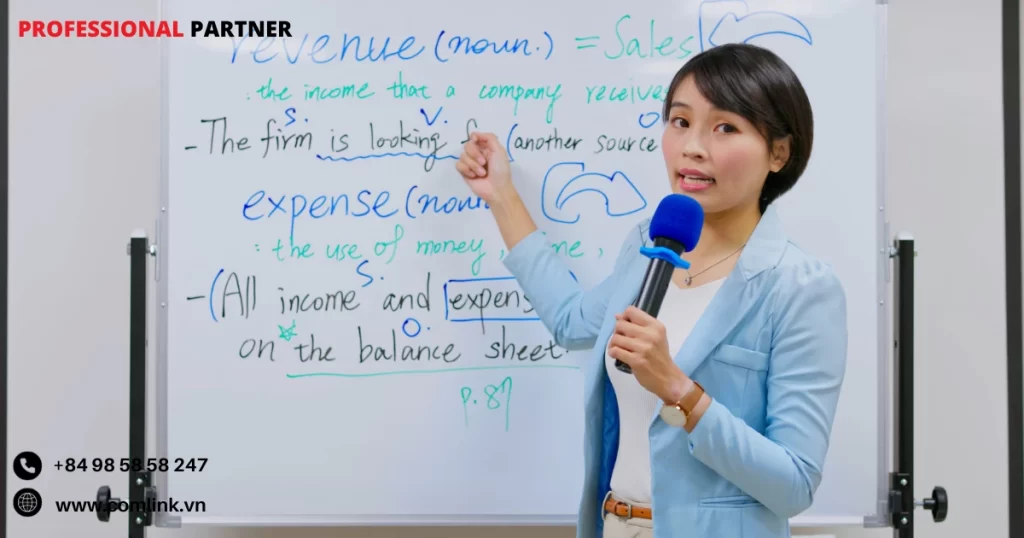 PROFESSIONAL PARTNER
revenue (noun.) = Sales
: the income that a company receives
S. V. O
- The firm is looking f (another source
expense (noun
: the use of money, time,
S.
- (All income and expens
O.
on the balance sheet.
p.87
+84 98 58 58 247
www.pomlink.vn